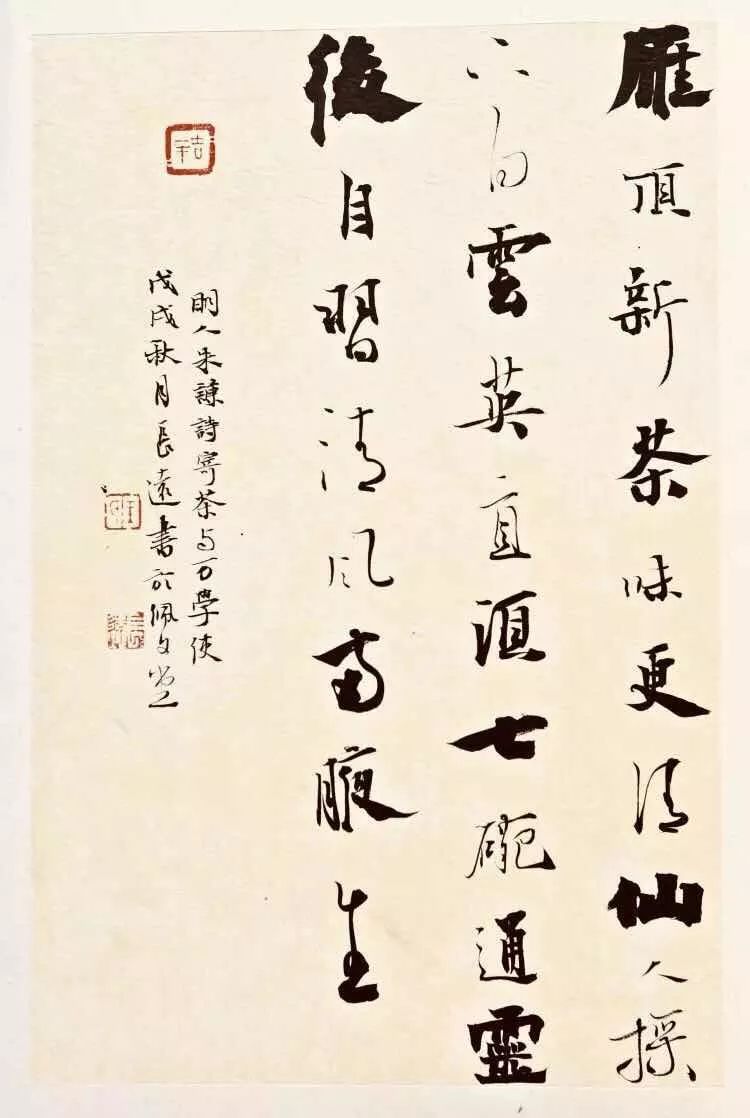 雁頂新茶味更清仙人採
下白雲英直須七碗通靈
後自習清風兩腋生
明人朱諫詩寄茶与万學使
戊戌秋月長遠書於佩文堂
吉羊